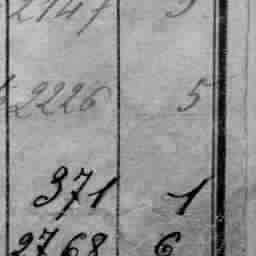 2147 5
2226 5
371 1
2768 6